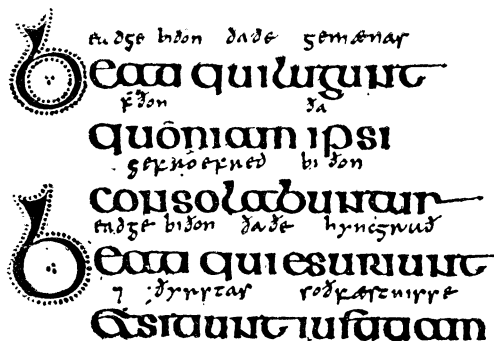 eadge biðon ða ðe gemænas
Beati qui lugunt
f'ðon ða
quoniam ipsi
gefroefred biðon
consolabuntur
eadge biðon ða ðe hyncgrað
Beati qui esuriunt
⁊ ðyrstas soðfæstnisse
&sitiunt iustitiam